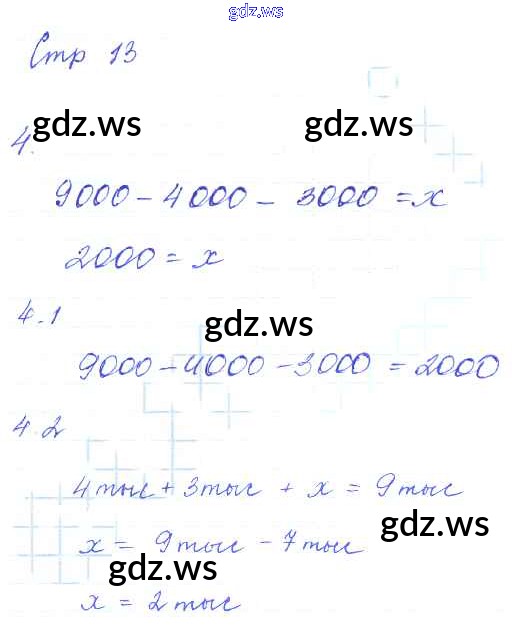 gdz.ws
Стр 13
gdz.ws gdz.ws
4.
9000 - 4000 - 3000 = x
2000 = x
4.1 gdz.ws
9000 - 4000 - 3000 = 2000
4.2
4 тыс + 3 тыс + x = 9 тыс
gdz.ws
x = 9 тыс - 7 тыс
gdz.ws
x = 2 тыс